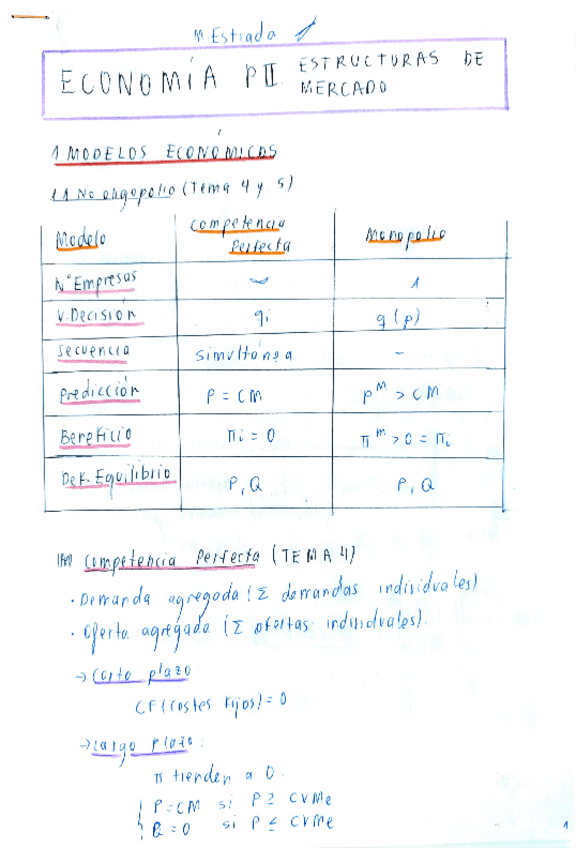 M. Estrada
ECONOMÍA PII. ESTRUCTURAS DE MERCADO
1 MODELOS ECONÓMICOS
1.1 No oligopolio (Tema 4 y 5)
Modelo Competencia Perfecta Monopolio
Nº Empresas 1
V. Decisión qi q(p)
Secuencia simultónea -
Predicción P = CM p^M > CM
Beneficio πi = 0 π^m > 0 = πi
Def. Equilibrio P, Q P, Q
Competencia Perfecta (TEMA 4)
· Demanda agregada (Σ demandas individuales)
· Oferta agregada (Σ ofertas individuales).
→ Corto plazo
CF (Costes Fijos) = 0
→ Largo plazo:
π tienden a 0.
P = CM si P ≥ CVMe
Q = 0 si P ≤ CVMe
1